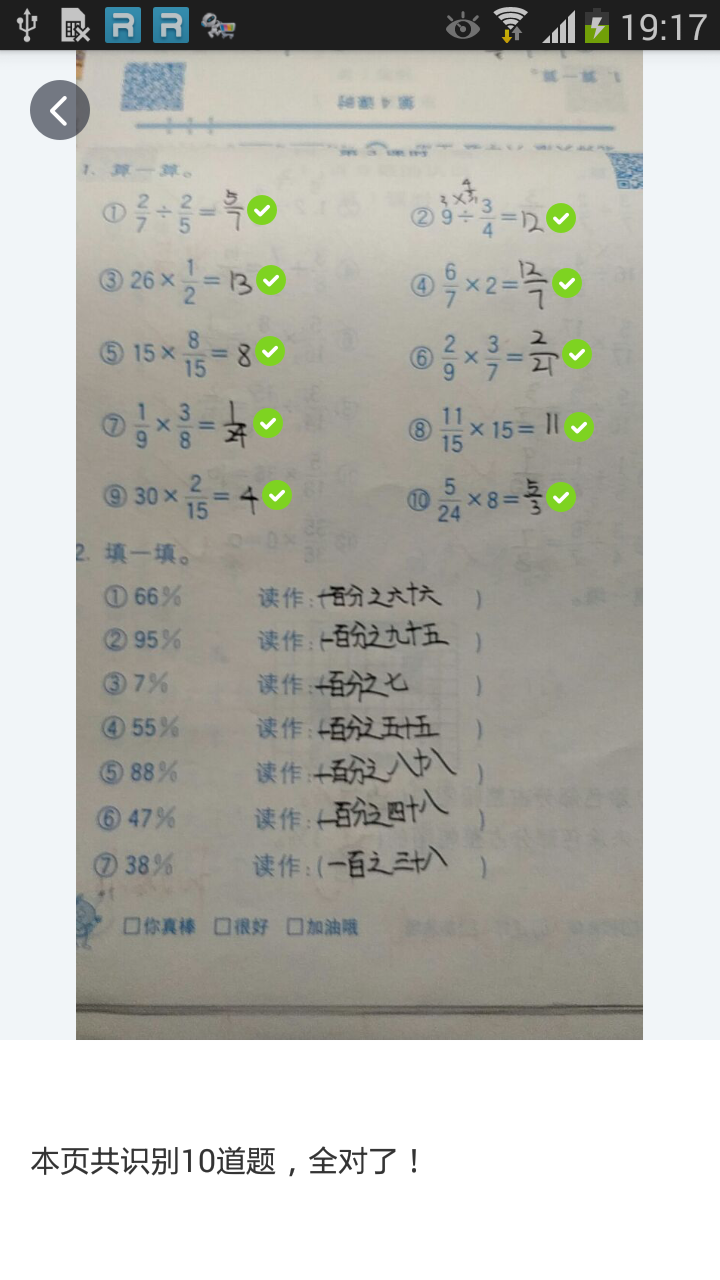 19:17
1. 算一算。
① 2/7 ÷ 2/5 = 5/7
② 9 ÷ 3/4 = 12
③ 26 × 1/2 = 13
④ 6/7 × 2 = 12/7
⑤ 15 × 8/15 = 8
⑥ 2/9 × 3/7 = 2/21
⑦ 1/9 × 3/8 = 1/24
⑧ 11/15 × 15 = 11
⑨ 30 × 2/15 = 4
⑩ 5/24 × 8 = 5/3
2. 填一填。
① 66% 读作:(一百分之六十六 )
② 95% 读作:(一百分之九十五 )
③ 7% 读作:(一百分之七 )
④ 55% 读作:(一百分之五十五 )
⑤ 88% 读作:(一百分之八十八 )
⑥ 47% 读作:(一百分之四十八 )
⑦ 38% 读作:(一百之三十八 )
□你真棒 □很好 □加油哦
本页共识别10道题，全对了！